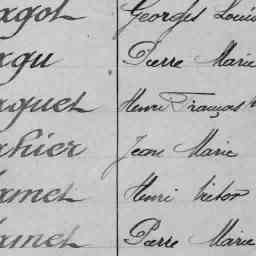 agot Georges Louis
agu Pierre Marie
aguet Henri François
ahier Jean Marie
amet Henri Victor
amet Pierre Marie